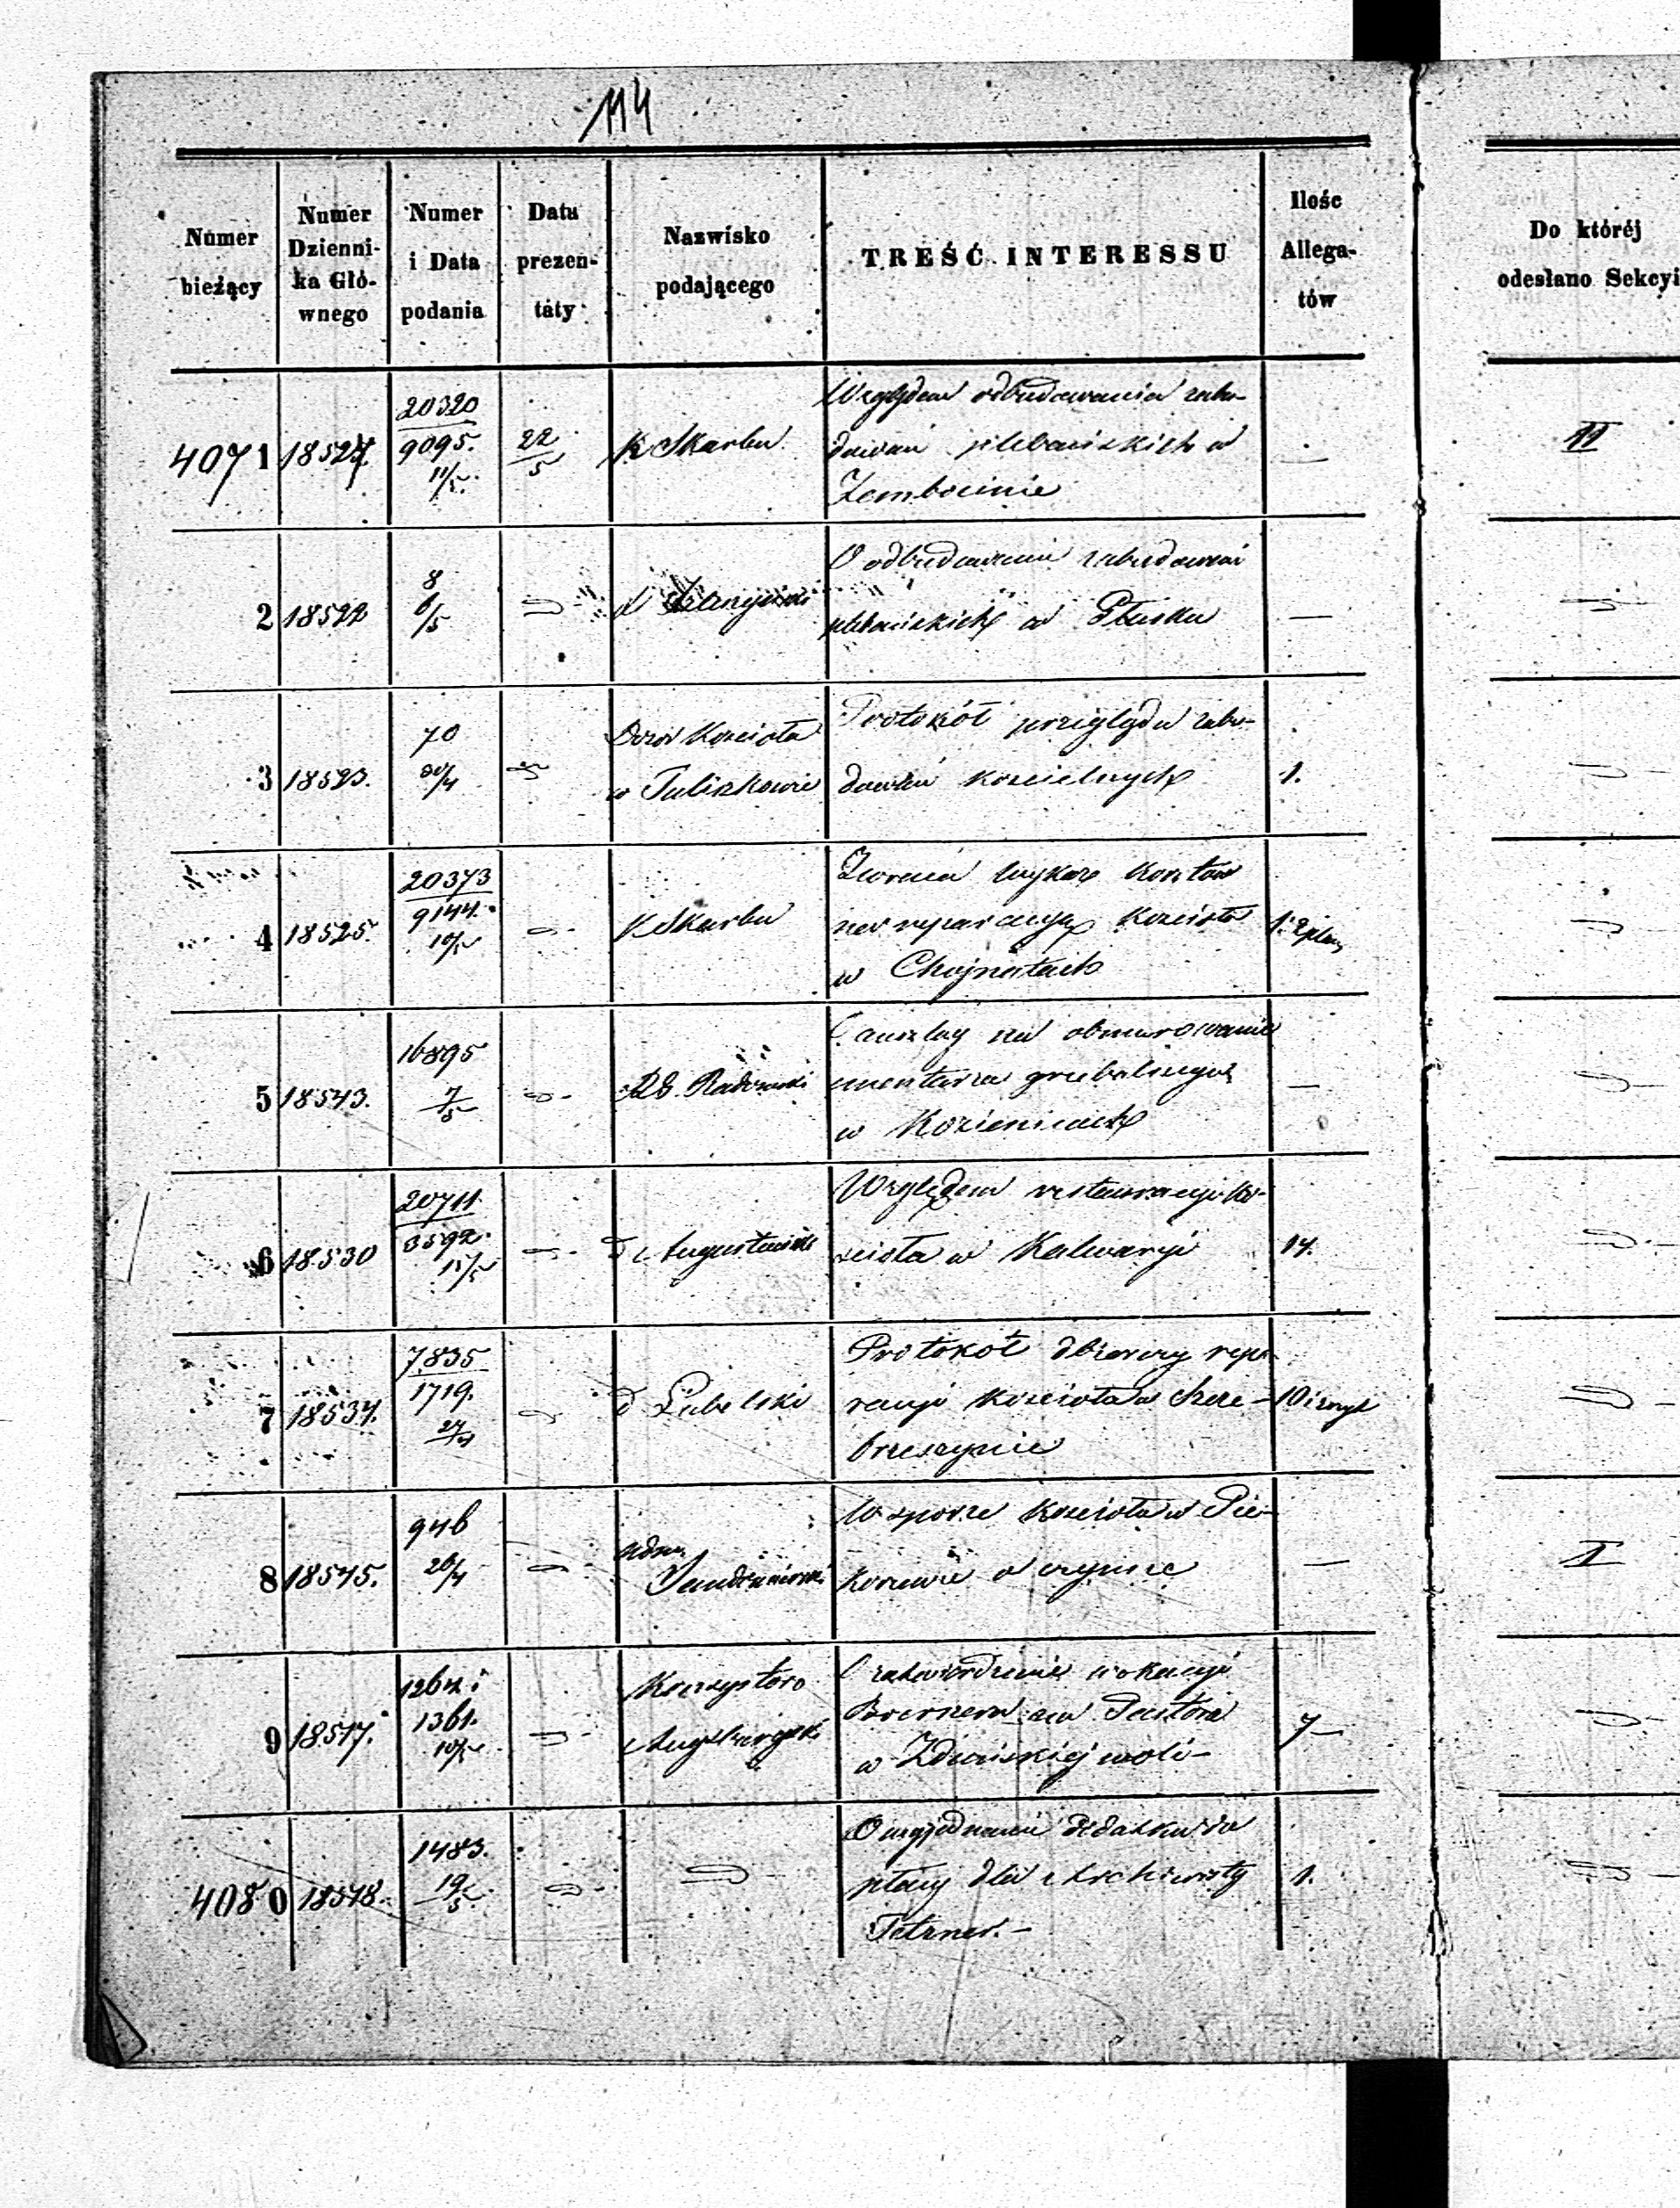 114
Numer bieżący | Numer Dzienni-ka Głó-wnego | Numer i Data podania | Data prezen-taty | Nazwisko podającego | TREŚĆ INTERESSU | Ilośc Allega-tów | Do któréj odesłano Sekcyi
4071 | 18527. | 20320 9095. 11/5. | 22/5 | K Skarbu | Względem odbudowania zabu-
dowań plebańskich w
Zembocinie | II
2 | 18522 | 8 6/5 | O odbudowanie zabudowań
plebańskich w Płusku | —
3 | 18523. | 70 30/4 | Dozór Kościoła
w Tuliszkowie | Protokół przeglądu zabu-
dowań kościelnych | 1.
4 | 18525. | 20373 9144. 10/5 | K Skarbu | Zwraca wykaz kosztów
na reparacyą kościoła
w Chojnatach | 1. 2 plany
5 | 18543. | 16895 7/5 | RG. Radomski | O anszlag na obmurowanie
cmentarza grzebalnego
w Kozienicach | —
6 | 18530 | 20711 3592. 15/5 | d Augustowski | Względem restauracyi ko-
ścioła w Kalwaryi | 14.
7 | 18534. | 7835 1719. 24/4 | d Lubelski | Protokół odbiorczy repa-
racyi kościoła w Szcze-
brzeszynie | 10
8 | 18545. | 946 26/4 | Adm.
Sandomierski | W sporze kościoła w Pie-
koszewie o czynsz | — | I
9 | 18517. | 1264 i
1361. 10/5 | Konsystorz
Augsburgski | O zatwierdzenie wokacyi
Boernera na Pastora
w Zduńskiej woli | 7
4080 | 18518. | 1483. 19/5 | O wyjednanie dodatku do
płacy dla Archiwisty
Tetzner. | 1.